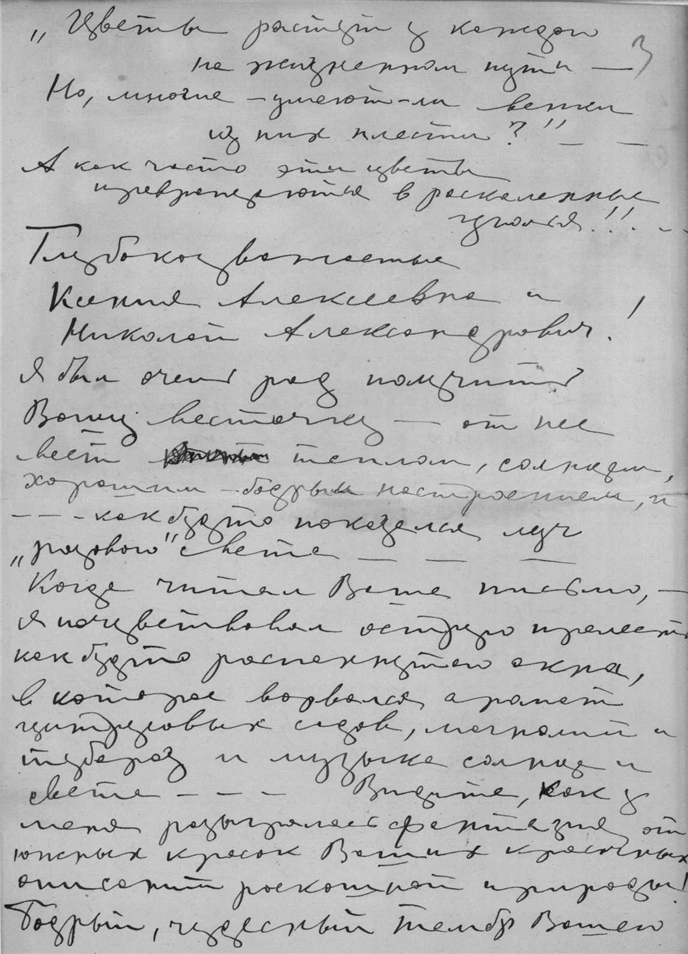 „Цветы растут у каждого
на жизненном пути — 3
Но, многие – умеют-ли венки
из них плести?" — —
А как часто эти цветы
превращаются в раскаленные
уголья!!! - -
Глубокоуважаемые
Ксения Алексеевна и
Николай Александрович!
Я был очень рад получить
Вашу весточку — от нее
веет теплом, солнцем,
хорошим – бодрым настроением, и
- - - как будто показался луч
„розового" света — — —
Когда читал Ваше письмо, —
я почувствовал острую прелесть
как будто распахнутого окна,
в которое ворвался аромат
цитрусовых садов, магнолий и
тубероз и музыка солнца и
света - - - Видите, как у
меня разыгралась фантазия от
южных красок Ваших красочных
описаний роскошной природы!
Бодрый, чудесный тембр Вашего